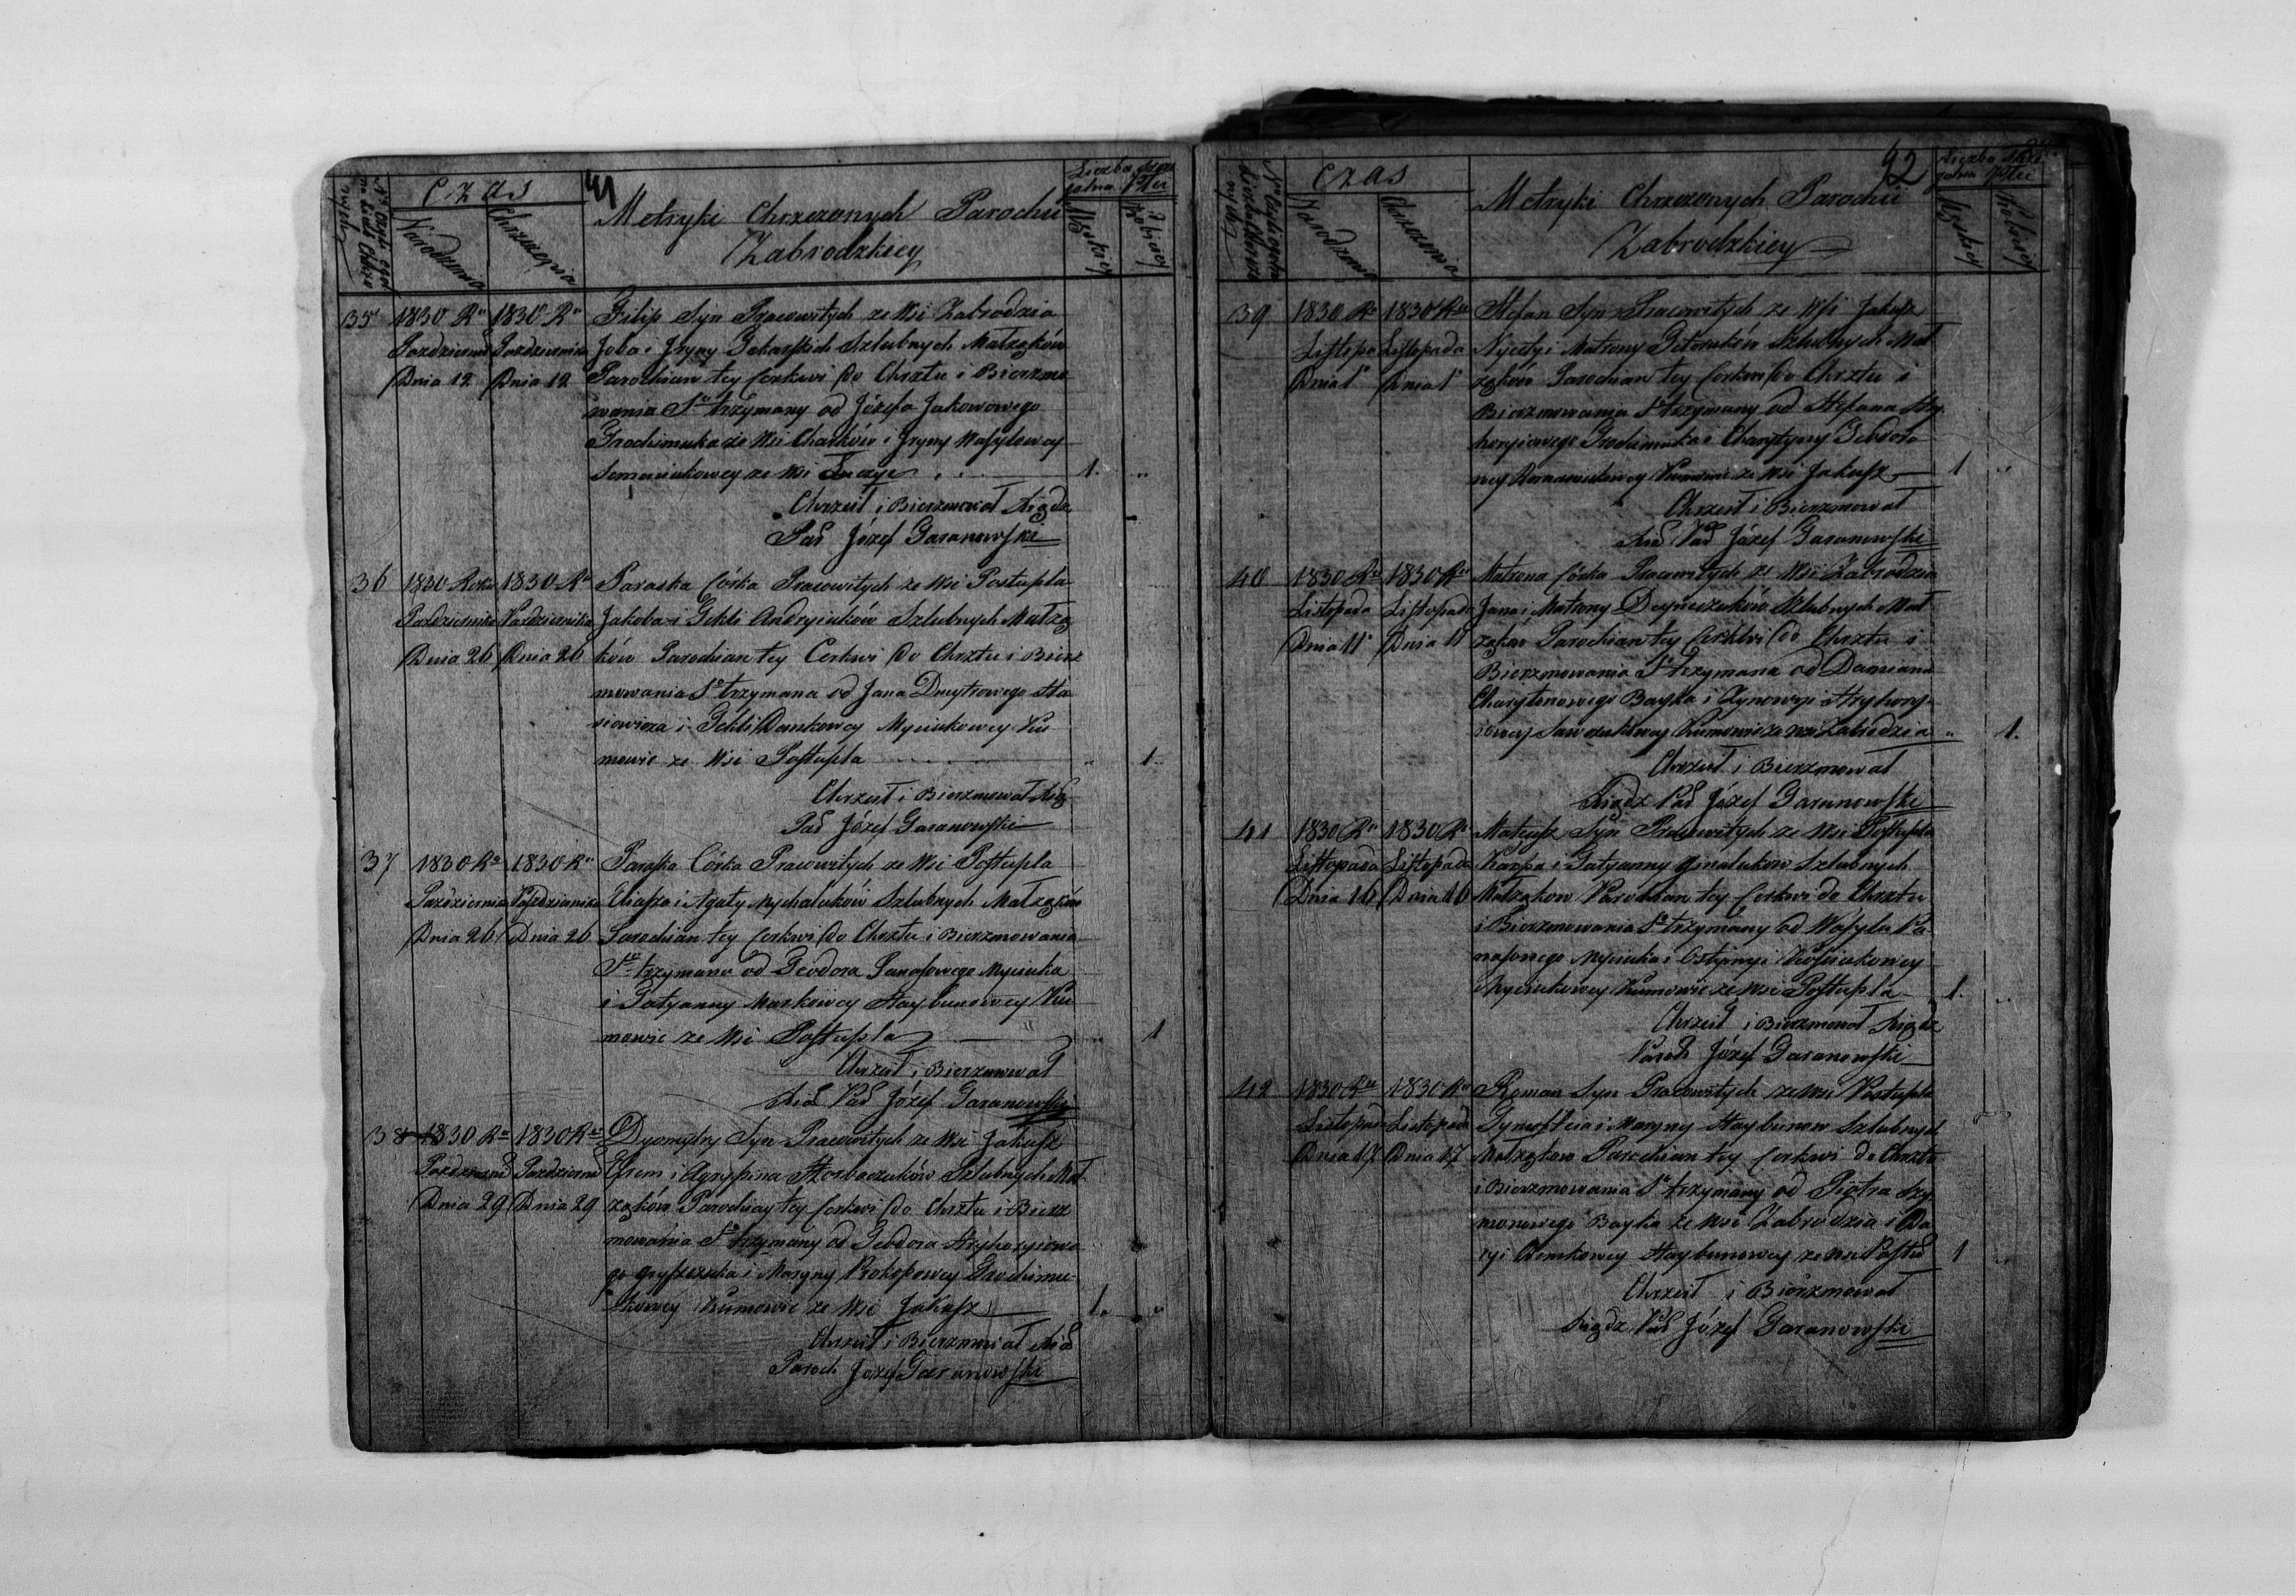 41
Czas
Narodzenia
Chrzczenia
Metryki Chrzczonych Parochii
Zabrodzkiey
Liczba szcze
gulna Płci
Męskiey
Kobiecey
35
1830 Rn
Pazdziernik
Dnia 12
1830 Rn
Pazdziernika
Dnia 12
Filip Syn Pracowitych ze Wsi Zabrodzia
Joba i Jryny Szlubnych Małżąków
Parochian tey Cerkwi do Chrztu i Bierzmo
wania So trzymany od Józefa Jakowowego
Trochimuka ze Wsi i Jryny Wasylowey
Semeniukowey ze Wsi
1.
Chrzcił i Bierzmował Xiądz
Par Józef Garanowski
36
1830 Roku
Pazdziernika
Dnia 26
1830 Rn
Pazdziernika
Dnia 26
Paraska Córka Pracowitych ze Wsi Postupla
Jakoba i Tekli Andryiuków Szlubnych Małżą
ków Parochian tey Cerkwi do Chrztu i Bierz
mowania So trzymana od Jana Dmytrowego
i Tekli Demkowey Myciukowey Ku
mowie ze Wsi Postupla
1
Chrzcił i Bierzmował Xią
Par Józef Garanowski
37
1830 Rn
Pazdziernika
Dnia 26
1830 Rn
Pazdziernika
Dnia 26
Paraska Córka Pracowitych ze Wsi Postupla
i Agaty Mychaluków Szlubnych Małżąków
Parochian tey Cerkwi do Chrztu i Bierzmowania
So trzymana od Teodora Panasowego Myciuka
i Tatyanny Markowey Haybunowey Ku
mowie ze Wsi Postupla
1
Chrzcił i Bierzmował
Xią Par Józef Garanowski
38
1830 Rn
Pazdziernik
Dnia 29
1830 Rn
Pazdziernik
Dnia 29
Dyomytry Syn Pracowitych ze Wsi Jakusz
Efrem i Agryppina Horbaczuków Szlubnych Mał
żąków Parochian tey Cerkwi do Chrztu i Bierz
mowania So trzymany od Teodora Hryhoryiowe
go i Maryny Prokopowey Trochimu
kowey Kumowie ze Wsi Jakusz
1.
Chrzcił i Bierzmował Xią
Paroch Józef Garanowski
42
Czas
Narodzenia
Chrzczenia
Metryki Chrzczonych Parochii
Zabrodzkiey
Liczba szcze
gulna Płci
Męskiey
Kobiecey
39
1830 Rn
Listopa
Dnia 1o
1830 Rn
Listopada
Dnia 1o
Stefan Syn Pracowitych ze Wsi Jakusz
Nycety i Matrony Szlubnych Mał
żąków Parochian tey Cerkwi do Chrztu i
Bierzmowania So trzymany od Stefana Hry
horyiowego Trochimuka i Charytyny Teodoro
wey Kumowie ze Wsi Jakusz
1
Chrzcił i Bierzmował
Xią Par Józef Garanowski
40
1830 Rn
Listopada
Dnia 11o
1830 Rn
Listopada
Dnia 11
Matrona Córka Pracowitych ze Wsi Zabrodzia
Jana i Matrony Szlubnych Mał
żąków Parochian tey Cerkwi do Chrztu i
Bierzmowania So trzymana od Damiana
Charytonowego Bayka i Hryhory
iowey Kumowie ze Wsi Zabrodzia
1.
Chrzcił i Bierzmował
Xiądz Par Józef Garanowski
41
1830 Rn
Listopada
Dnia 16
1830 Rn
Listopada
Dnia 16
Mateusz Syn Pracowitych ze Wsi Postupla
Karpa i Tatyanny Szlubnych
Małżąkow Parochian tey Cerkwi do Chrztu
i Bierzmowania So trzymany od Wasyla Pa
nasowego Myciuka i
Myciukowey Kumowie ze Wsi Postupla
1.
Chrzcił i Bierzmował Xiądz
Paroch Józef Garanowski
42
1830 Rn
Listopada
Dnia 17
1830 Rn
Listopada
Dnia 17
Roman Syn Pracowitych ze Wsi Postupla
i Maryny Haybunow Szlubnych
Małżąkow Parochian tey Cerkwi do Chrztu
i Bierzmowania So trzymany od Piotra Szy
monowego Bayka ze Wsi Zabrodzia i Da
ryi Haybunowey ze Wsi Postu
1
Chrzcił i Bierzmował
Xiądz Par Józef Garanowski